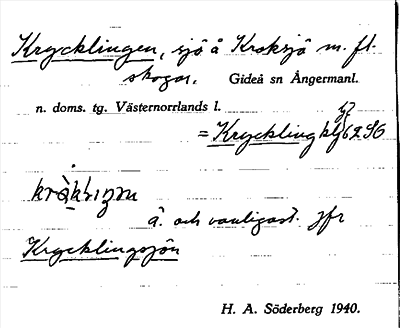 Krycklingen, sjö å Kroksjö m. fl.
skogar. Gideå sn Ångermanl.
n. doms. tg. Västernorrlands l.
= Kryckling
å. och vanligast. jfr
Krycklingssjön
H. A. Söderberg 1940.